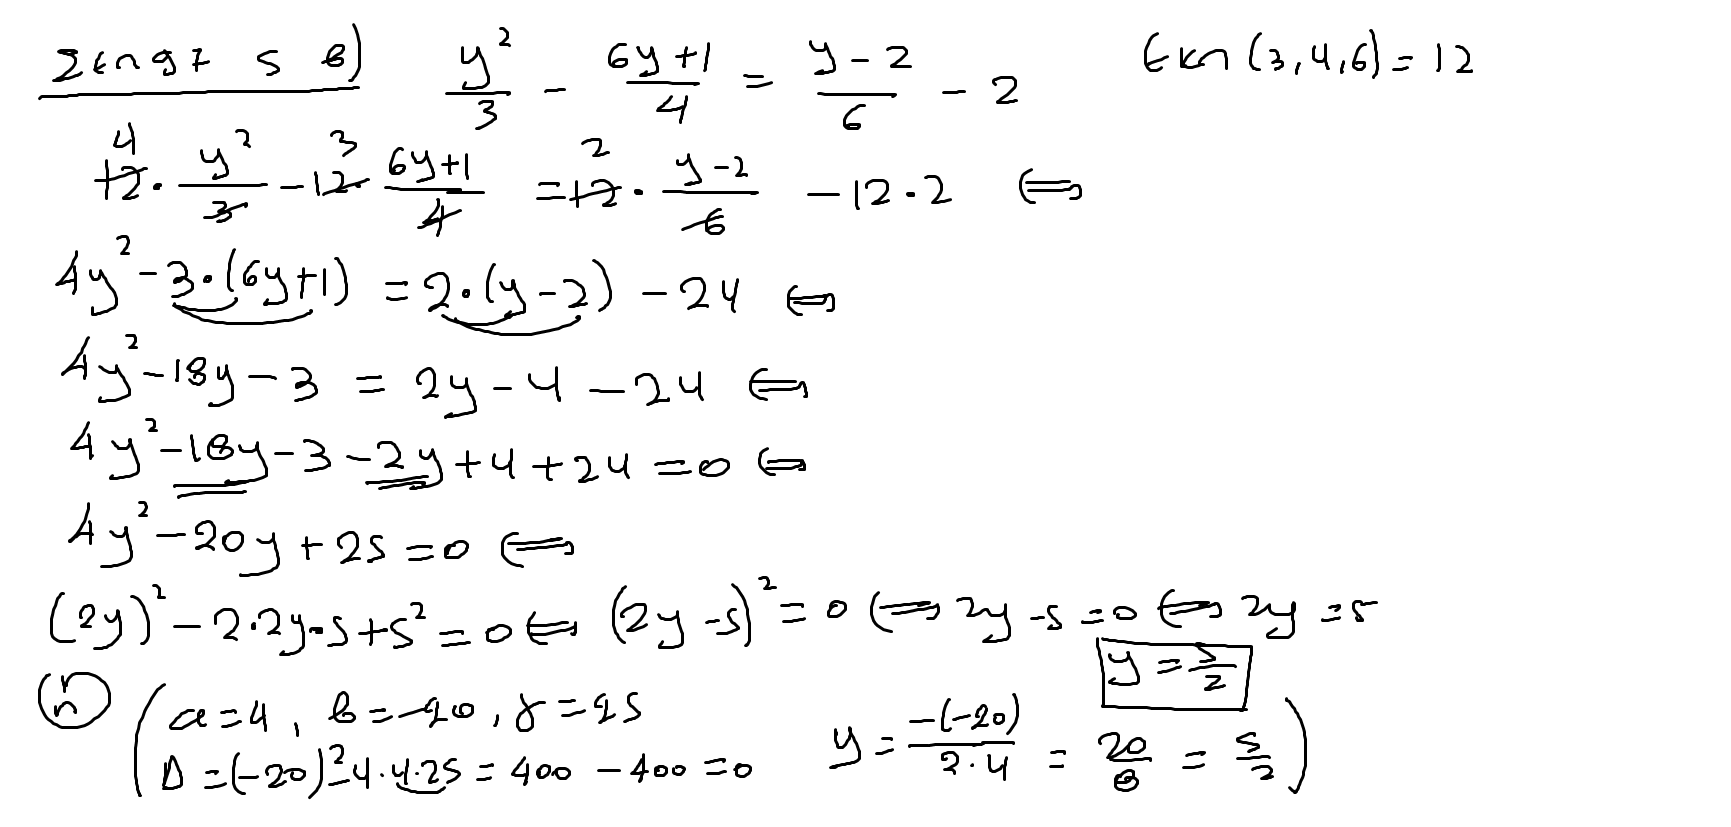 Σελ 97 5 β) y²/3 - (6y+1)/4 = (y-2)/6 - 2 ΕΚΠ (3,4,6) = 12
12· y²/3 - 12· (6y+1)/4 = 12· (y-2)/6 - 12·2 ⟺
4y² - 3·(6y+1) = 2·(y-2) - 24 ⟺
4y² - 18y - 3 = 2y - 4 - 24 ⟺
4y² - 18y - 3 - 2y + 4 + 24 = 0 ⟺
4y² - 20y + 25 = 0 ⟺
(2y)² - 2·2y·5 + 5² = 0 ⟺ (2y-5)² = 0 ⟺ 2y-5 = 0 ⟺ 2y = 5
y = 5/2
ή (α=4, β=-20, γ=25
Δ = (-20)² - 4·4·25 = 400 - 400 = 0 y = -(-20)/2·4 = 20/8 = 5/2)